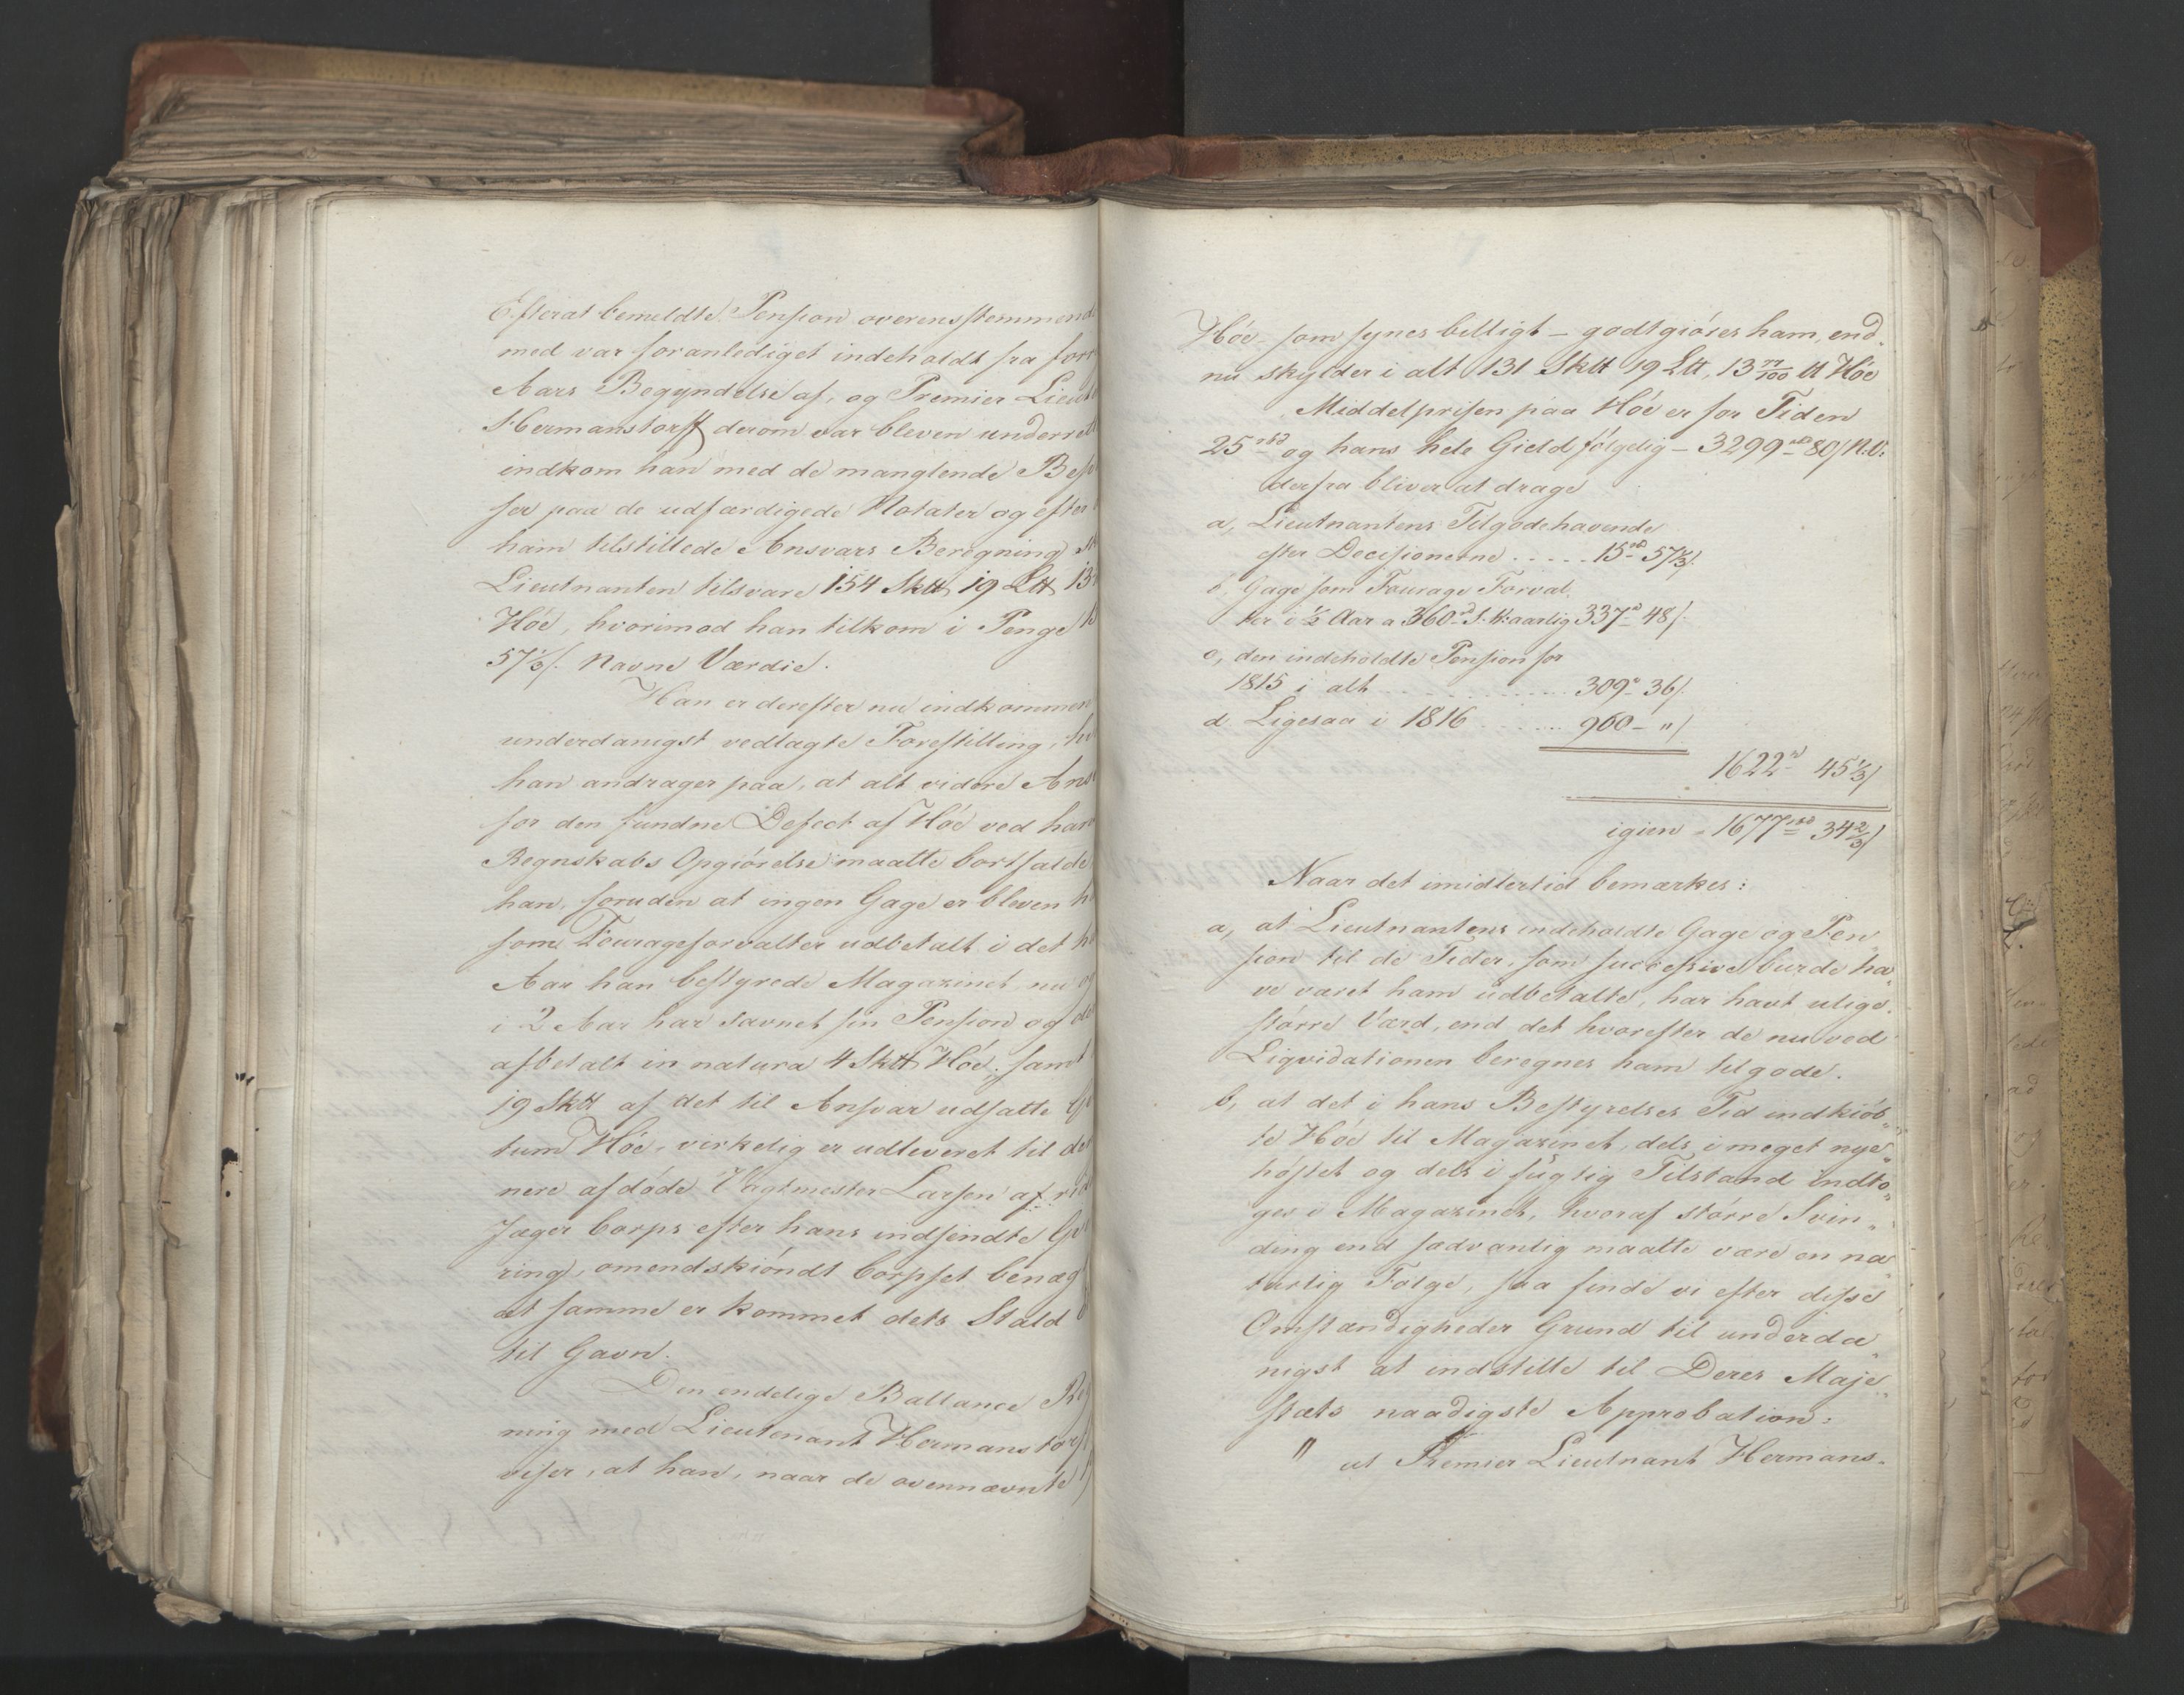 Efterat bemeldte Pension overensstemmende
med var foranlediget indeholdt fra forr
Aars Begyndelse af, og Premier Lieut
Hermanstorff derom var bleven underret
indkom han med de manglende Besv
ser paa de udfærdigede Notater og efter
ham tilstillede Ansvars Beregning
Lieutnanten tilsvare 154 Sk℔ 19 L℔ 13
Höe, hvorimod han tilkom i Penge 15
57⅓ s. Navne Værdie.
Han er derefter nu indkommen
underdanigst vedlagte Forestilling, hv
han andrager paa, at alt videre Ans
for den fundne Defect af Höe ved hans
Regnskabs Opgiörelse maatte bortfalde
han, foruden at ingen Gage er bleven h
som Fourageforvalter udbetalt i det h
Aar han bestyrede Magazinet, nu og
i 2 Aar har savnet sin Pension og
afbetalt in natura 4 Sk℔ Höe, samt
19 Sk℔ af det til Ansvar udsatte Qv
tum Höe, virkelig er udleveret til den
nere afdöde Vagtmester Larsen af rid
Jæger Corps efter hans indsendte Qv
ring, omendskiöndt Corpset benæg
at samme er kommet dets Stald
til Gavn.
Den endelige Ballance Reg
ning med Lieutenant Hermanstorff
viser, at han, naar de ovennævnte
Höe som synes billigt – godtgiöres ham, end,
nu skylder i alt 131 Sk℔ 19 L℔, 13 77/100 ℔ Höe
Middelprisen paa Höe er for Tiden
25 rbd og hans hele Gield fölgelig – 3299 rbd 80 s N.V.
derfra bliver at drage
a, Lieutnantens Tilgodehavende
efter Decisionerne . . . . . 15 rbd 57⅓ s.
b, Gage som Fourage Forval,
ter i ½ Aar a 360 rd S.V. aarlig 337 rd 48 s.
c, den indeholdte Pension for
1815 i alt . . . . . . . . . 309 rd 36 s.
d Ligesaa i 1816 . . . . . 960 – " s
1622 rd 45⅓ s
igien – 1677 rbd 34⅔ s
Naar det imidlertid bemærkes:
a, at Lieutnantens indeholdte Gage og Pen„
sion til de Tider, som successive burde ha„
ve været ham udbetalte, har havt ulige
större Værd, end det hvorefter de nu ved
Liqvidationen beregnes ham til gode.
b, at det i hans Bestyrelses Tid indkiöb„
te Höe til Magazinet, dels i meget nye„
höstet og dels i fugtig Tilstand indto„
ges i Magazinet, hvoraf större Svin„
ding end sædvanlig maatte være en na„
turlig Fölge, saa finde vi efter disse
Omstændigheder Grund til underda„
nigst at indstille til Deres Maje„
stæts naadigste Approbation:
" at Premier Lieutnant Hermans„